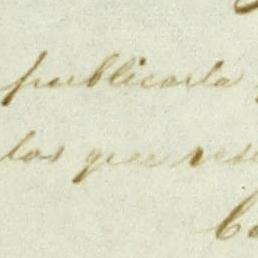 publicarla
los que res